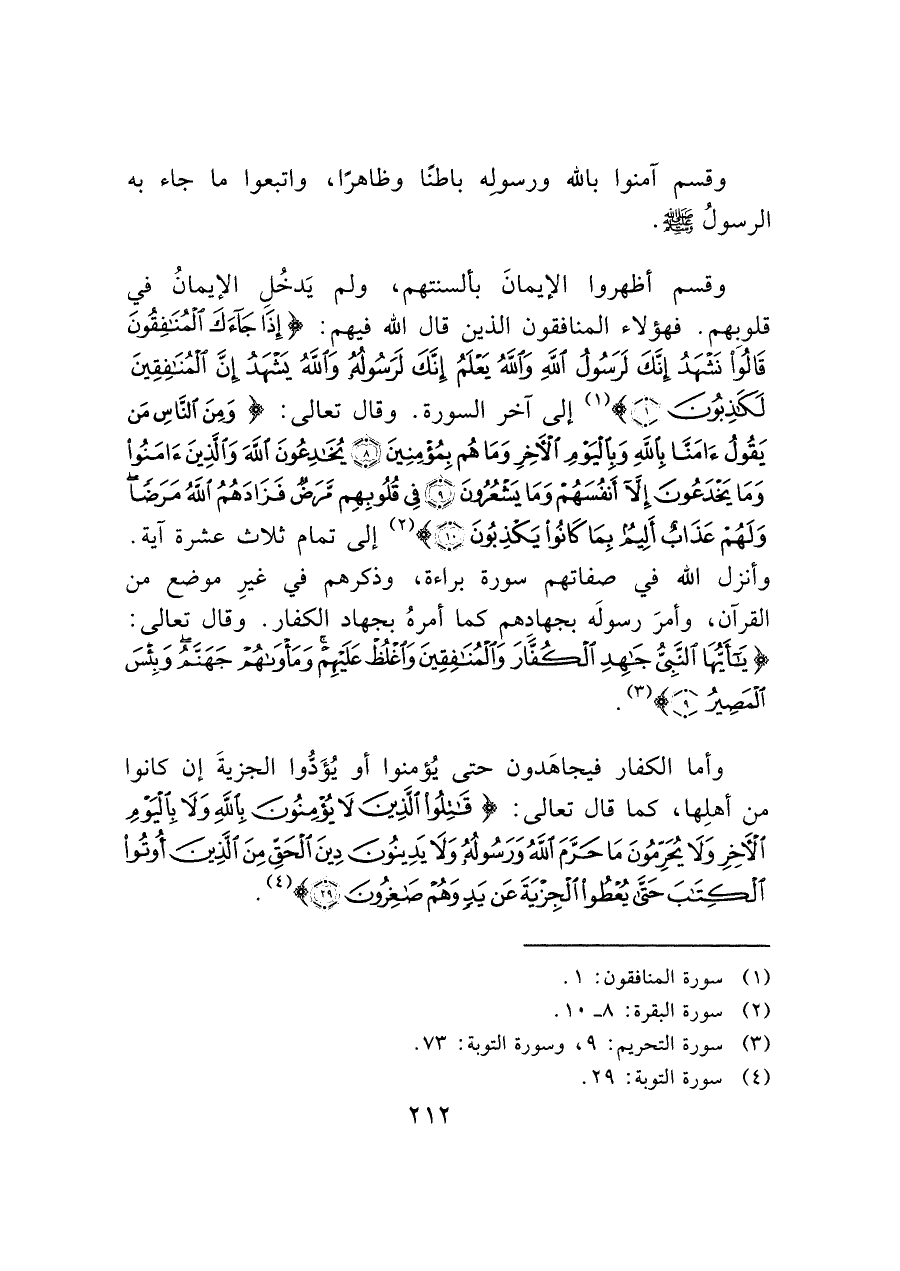 وقسم آمنوا بالله ورسولِه باطنًا وظاهرًا، واتبعوا ما جاء به
الرسولُ ﷺ.
وقسم أظهروا الإيمانَ بألسنتهم، ولم يَدخُلِ الإيمانُ في
قلوبِهم. فهؤلاء المنافقون الذين قال الله فيهم: ﴿إِذَا جَآءَكَ ٱلْمُنَٰفِقُونَ
قَالُوا۟ نَشْهَدُ إِنَّكَ لَرَسُولُ ٱللَّهِ وَٱللَّهُ يَعْلَمُ إِنَّكَ لَرَسُولُهُۥ وَٱللَّهُ يَشْهَدُ إِنَّ ٱلْمُنَٰفِقِينَ
لَكَٰذِبُونَ ١﴾(١) إلى آخر السورة. وقال تعالى: ﴿وَمِنَ ٱلنَّاسِ مَن
يَقُولُ ءَامَنَّا بِٱللَّهِ وَبِٱلْيَوْمِ ٱلْأَخِرِ وَمَا هُم بِمُؤْمِنِينَ ٨ يُخَٰدِعُونَ ٱللَّهَ وَٱلَّذِينَ ءَامَنُوا۟
وَمَا يَخْدَعُونَ إِلَّآ أَنفُسَهُمْ وَمَا يَشْعُرُونَ ٩ فِى قُلُوبِهِم مَّرَضٌ فَزَادَهُمُ ٱللَّهُ مَرَضًاۖ
وَلَهُمْ عَذَابٌ أَلِيمٌۢ بِمَا كَانُوا۟ يَكْذِبُونَ ١٠﴾(٢) إلى تمام ثلاث عشرة آية.
وأنزل الله في صفاتهم سورة براءة، وذكرهم في غيرِ موضع من
القرآن، وأمرَ رسولَه بجهادِهم كما أمرهُ بجهاد الكفار. وقال تعالى:
﴿يَٰٓأَيُّهَا ٱلنَّبِىُّ جَٰهِدِ ٱلْكُفَّارَ وَٱلْمُنَٰفِقِينَ وَٱغْلُظْ عَلَيْهِمْۚ وَمَأْوَىٰهُمْ جَهَنَّمُۖ وَبِئْسَ
ٱلْمَصِيرُ ٩﴾(٣).
وأما الكفار فيجاهَدون حتى يُؤمنوا أو يُؤَدُّوا الجزيةَ إن كانوا
من أهلِها، كما قال تعالى: ﴿قَٰتِلُوا۟ ٱلَّذِينَ لَا يُؤْمِنُونَ بِٱللَّهِ وَلَا بِٱلْيَوْمِ
ٱلْأَخِرِ وَلَا يُحَرِّمُونَ مَا حَرَّمَ ٱللَّهُ وَرَسُولُهُۥ وَلَا يَدِينُونَ دِينَ ٱلْحَقِّ مِنَ ٱلَّذِينَ أُوتُوا۟
ٱلْكِتَٰبَ حَتَّىٰ يُعْطُوا۟ ٱلْجِزْيَةَ عَن يَدٍ وَهُمْ صَٰغِرُونَ ٢٩﴾(٤).
(١) سورة المنافقون: ١.
(٢) سورة البقرة: ٨ـ ١٠.
(٣) سورة التحريم: ٩، وسورة التوبة: ٧٣.
(٤) سورة التوبة: ٢٩.
٢١٢